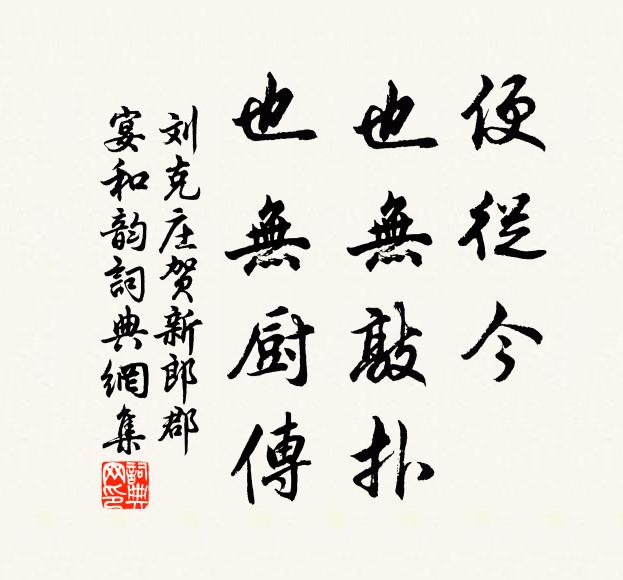 便從今
也無敲扑
也無厨傳
刘克庄贺新郎郡
宴和韵詞典網集
詞典
网印